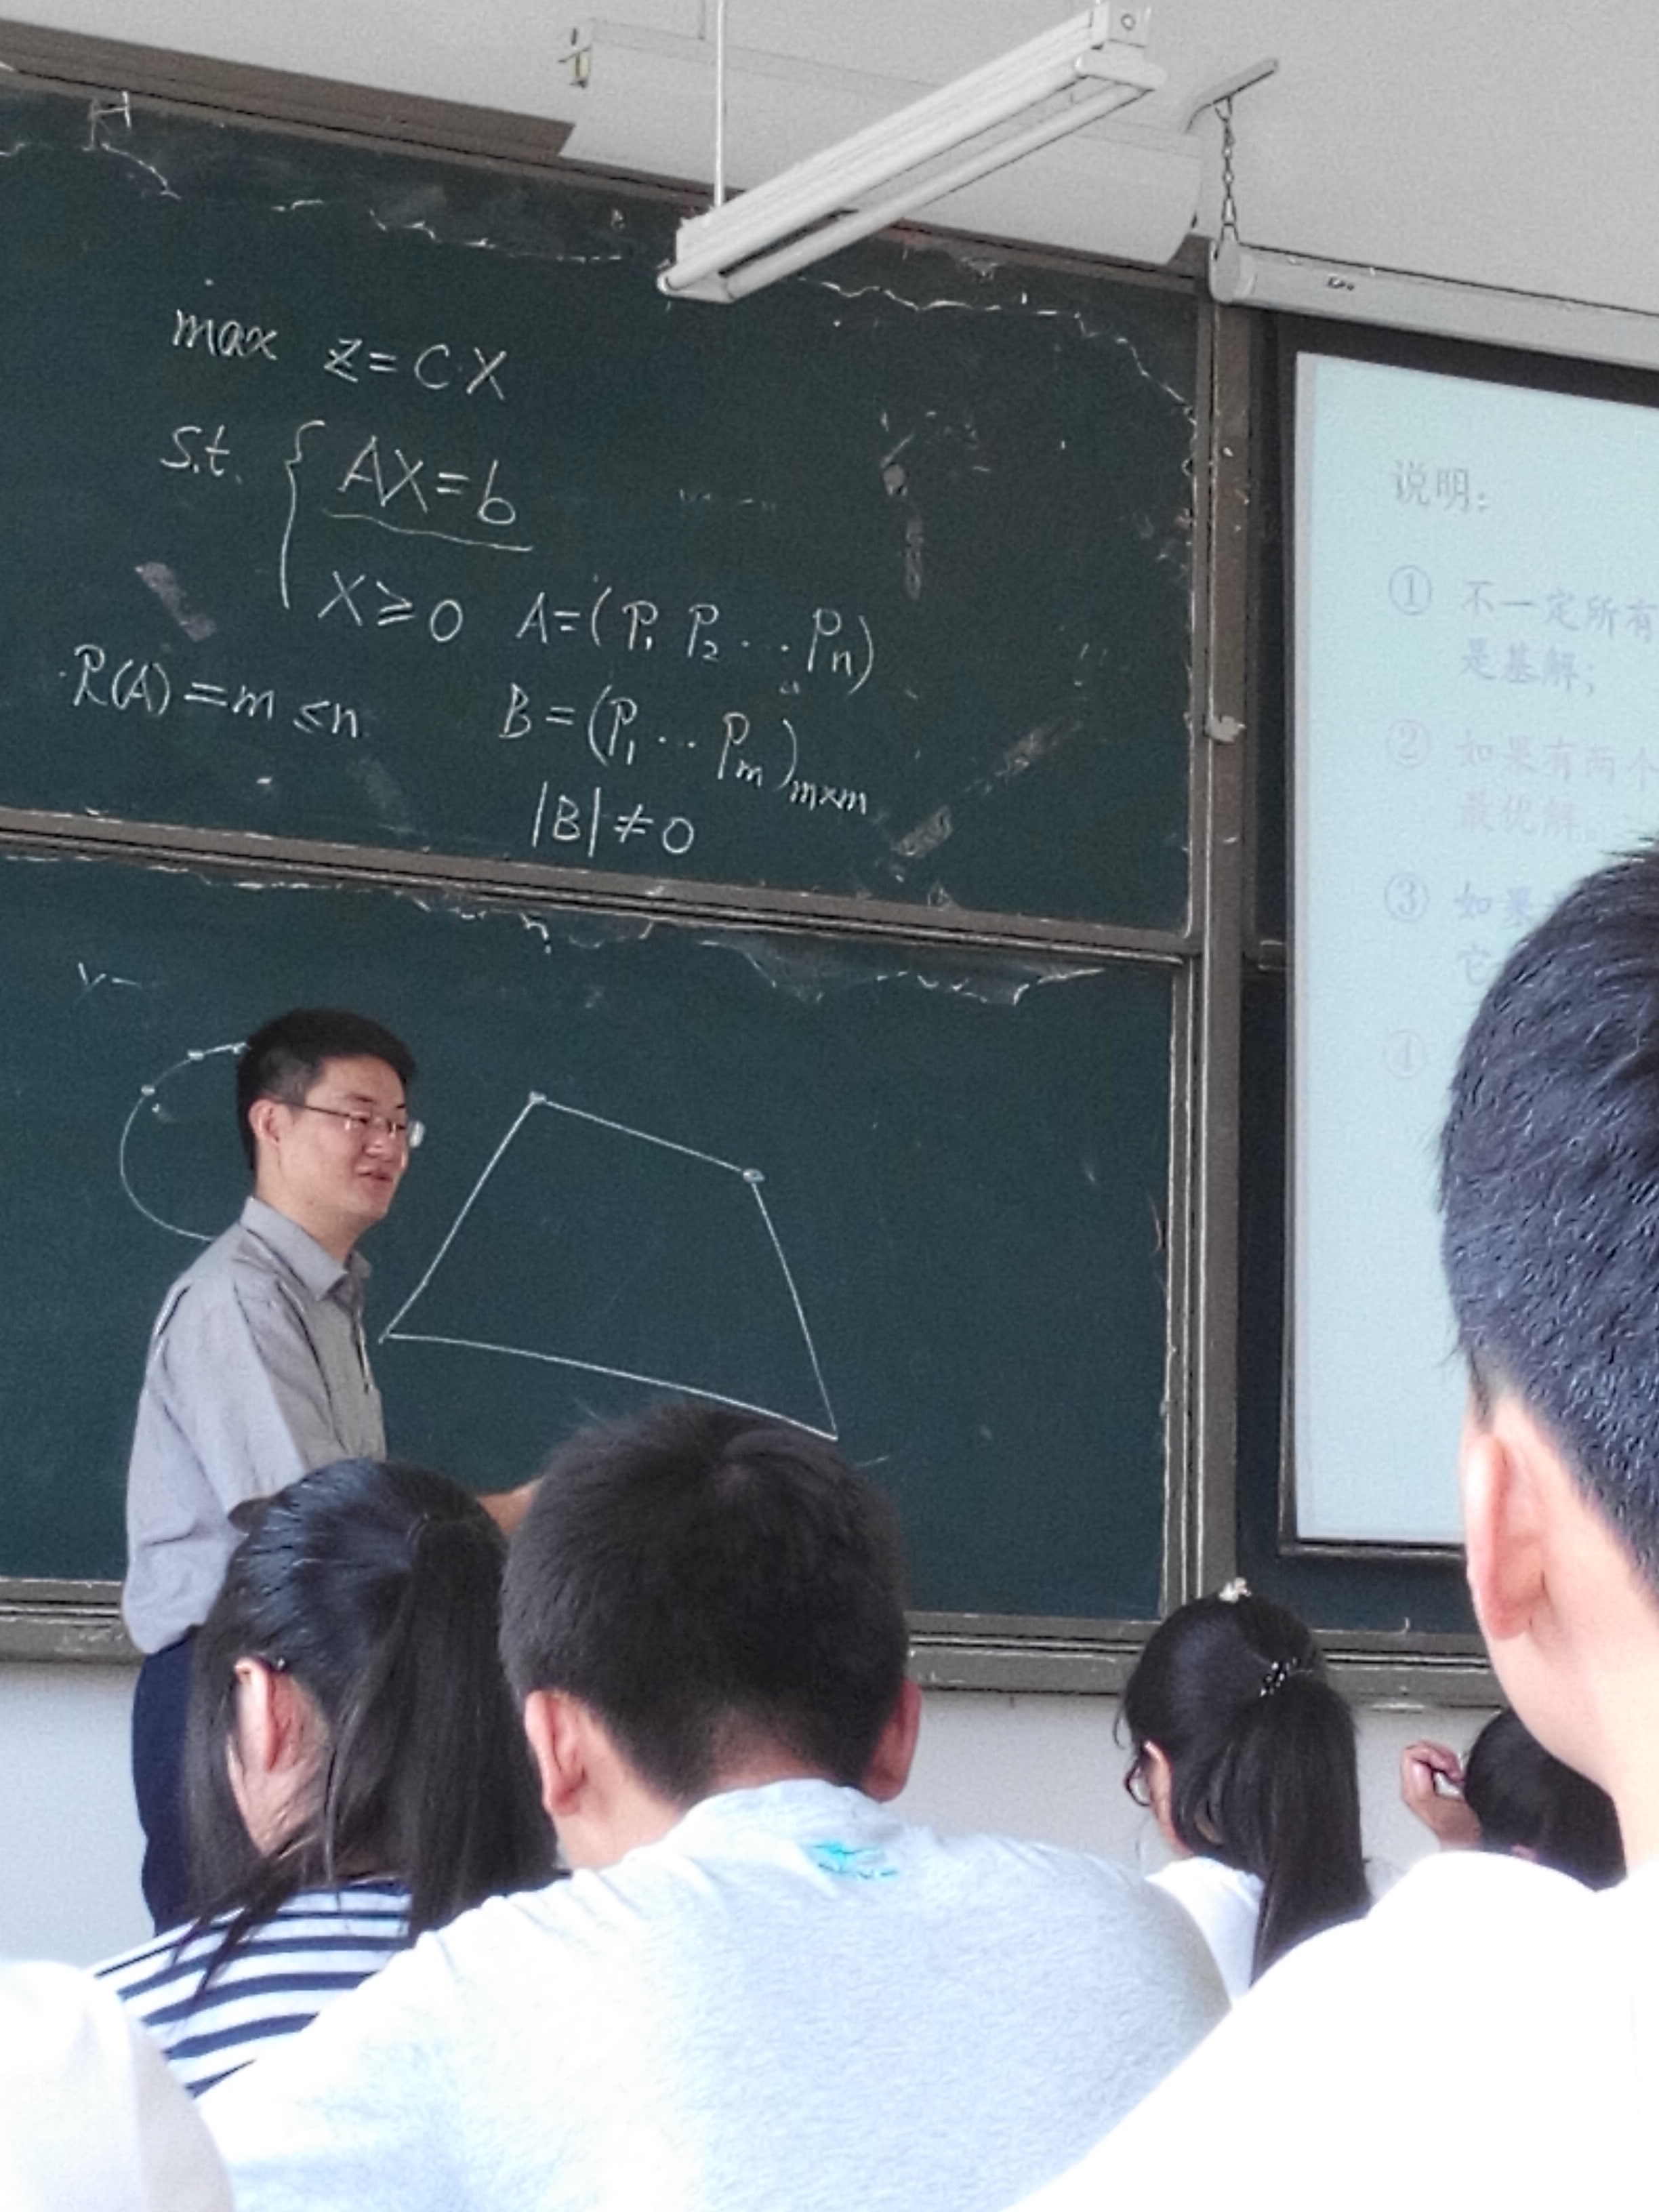 max z = C·X
s.t. { AX = b
X ≥ 0 A = (P₁ P₂ ⋯ Pₙ)
R(A) = m ≤ n B = (P₁ ⋯ Pₘ)ₘₓₘ
|B| ≠ 0
说明:
① 不一定所有
是基解;
② 如果有两个
最优解。
③ 如果
它
④